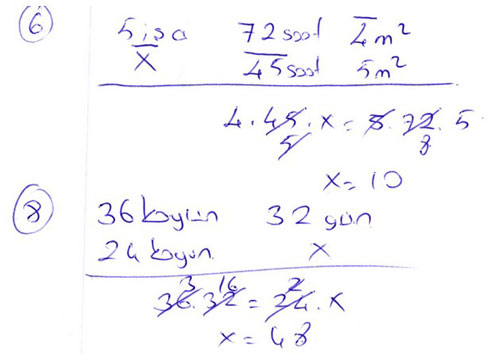 6 5 işçi 72 saat 4 m²
x 45 saat 5 m²
4 . 45 . x = 5 . 72 . 5
5 8
x = 10
8 36 koyun 32 gün
24 koyun x
3 16 2
36 . 32 = 24 . x
x = 48